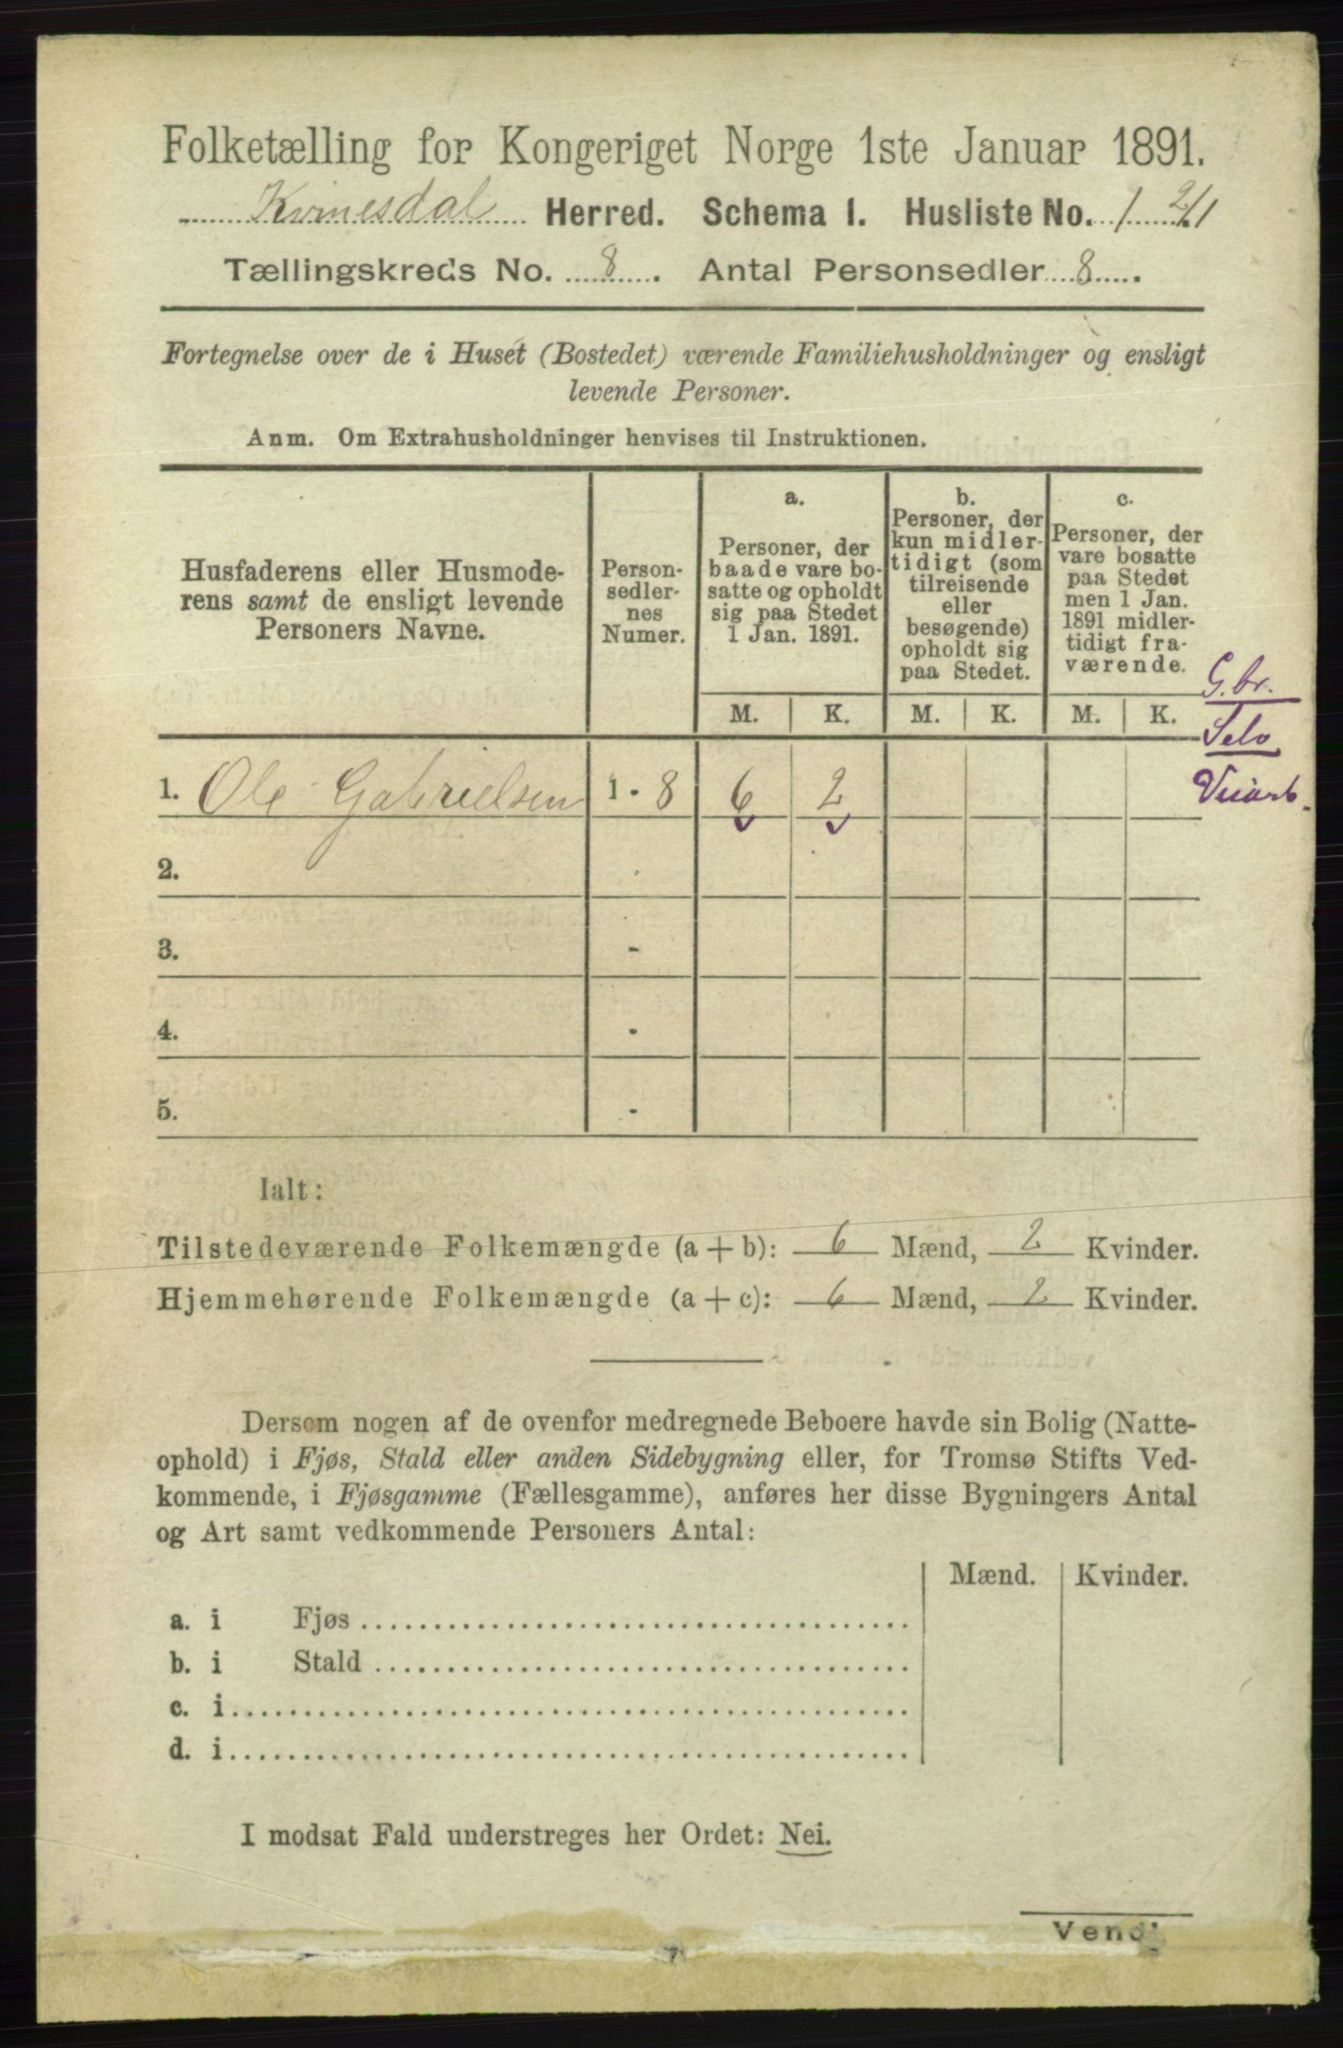 Folketælling for Kongeriget Norge 1ste Januar 1891.
Kvinesdal Herred. Schema I. Husliste No. 1
Tællingskreds No. 8. Antal Personsedler 8.
Fortegnelse over de i Huset (Bostedet) værende Familiehusholdninger og ensligt
levende Personer.
Anm. Om Extrahusholdninger henvises til Instruktionen.
Husfaderens eller Husmode-
rens samt de ensligt levende
Personers Navne.
Person-
sedler-
nes
Numer.
a.
Personer, der
baade vare bo-
satte og opholdt
sig paa Stedet
1 Jan. 1891.
b.
Personer, der
kun midler-
tidigt (som
tilreisende
eller
besøgende)
opholdt sig
paa Stedet.
c.
Personer, der
vare bosatte
paa Stedet
men 1 Jan.
1891 midler-
tidigt fra-
værende.
G.br.
Selv
Veiarb.
M. K. M. K. M. K.
1. Ole Gabrielsen 1 - 8 6 2
2.
3. -
4. -
5. -
Ialt:
Tilstedeværende Folkemængde (a + b): 6 Mænd, 2 Kvinder.
Hjemmehørende Folkemængde (a + c): 6 Mænd, 2 Kvinder.
Dersom nogen af de ovenfor medregnede Beboere havde sin Bolig (Natte-
ophold) i Fjøs, Stald eller anden Sidebygning eller, for Tromsø Stifts Ved-
kommende, i Fjøsgamme (Fællesgamme), anføres her disse Bygningers Antal
og Art samt vedkommende Personers Antal:
Mænd. Kvinder.
a. i Fjøs
b. i Stald
c. i
d. i
I modsat Fald understreges her Ordet: Nei.
Vend!